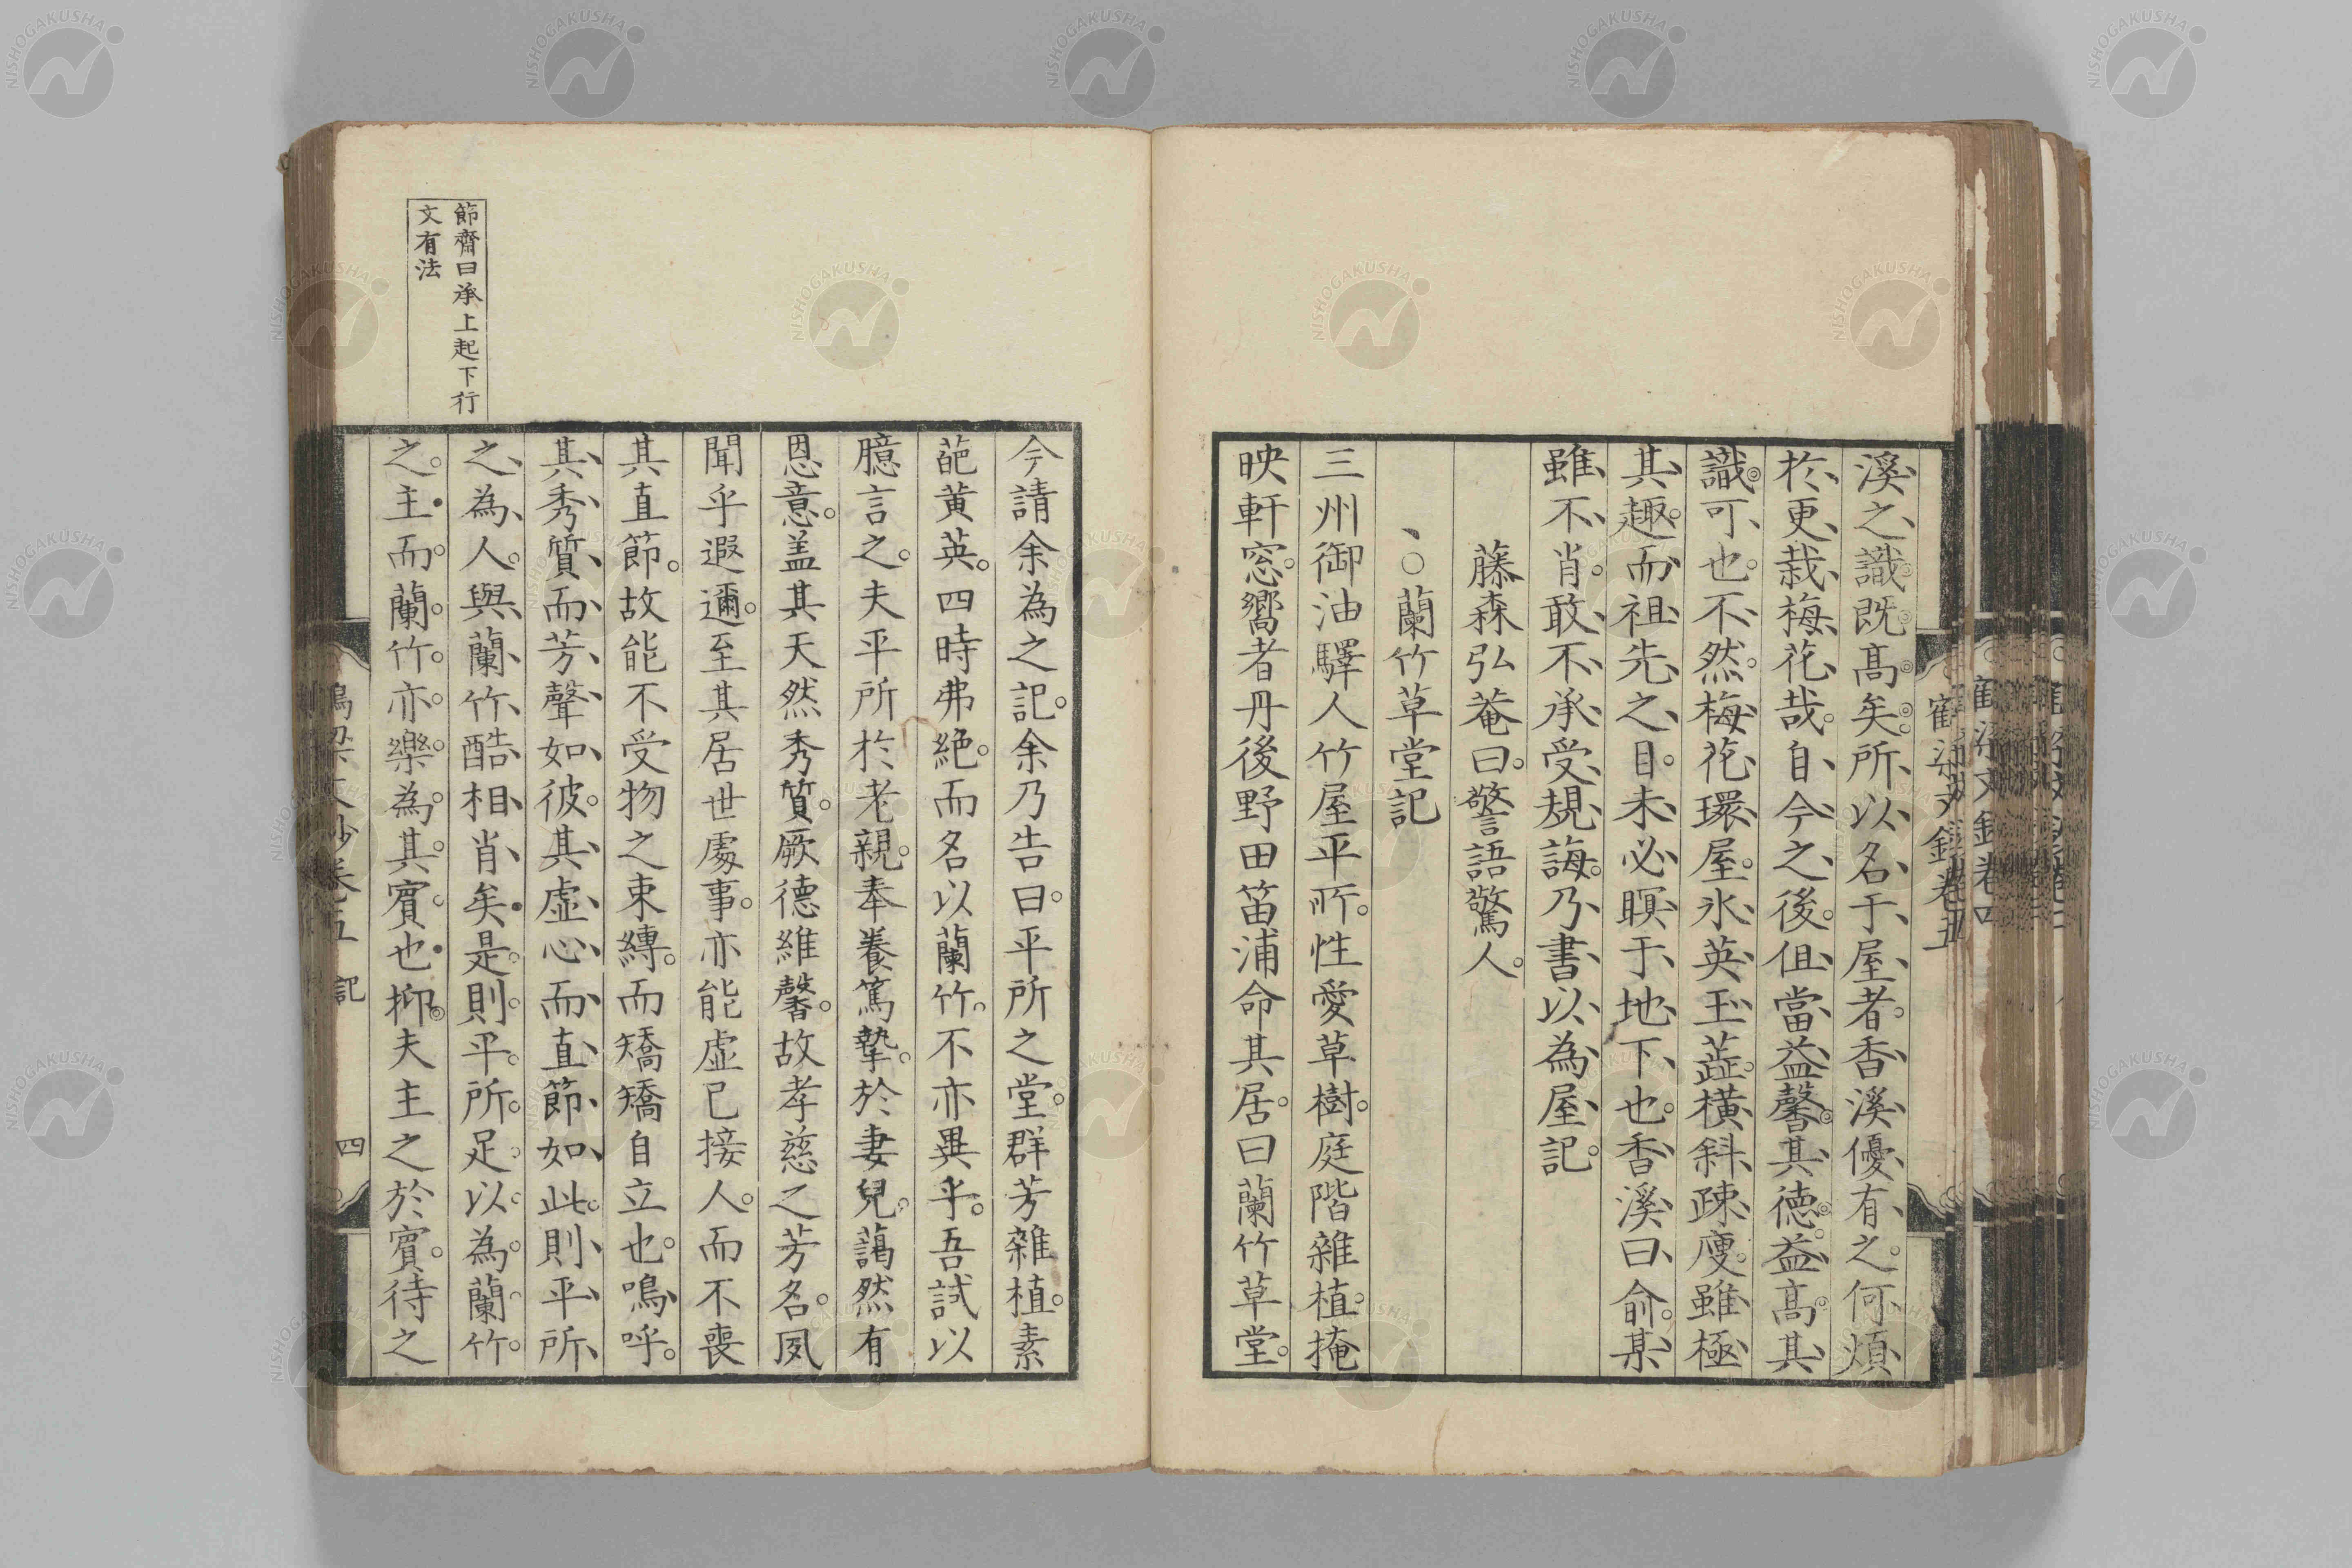 溪之識既高矣所以名于屋者香溪優有之何煩
於更栽梅花哉自今之後但當益馨其德益高其
識可也不然梅花環屋氷英玉蘂橫斜疎廋雖極
其趣而祖先之目未必瞑于地下也香溪曰俞某
雖不肖敢不承受規誨乃書以為屋記
藤森弘菴曰警語驚人
○蘭竹草堂記
三州御油驛人竹屋平所性愛草樹庭階雜植掩
映軒窓嚮者丹後野田笛浦命其居曰蘭竹草堂
今請余為之記余乃告曰平所之堂群芳雜植素
葩黃英四時弗絕而名以蘭竹不亦異乎吾試以
臆言之夫平所於老親奉養篤摯於妻兒藹然有
恩意盖其天然秀質厥德維馨故孝慈之芳名夙
聞乎遐邇至其居世處事亦能虛已接人而不喪
其直節故能不受物之束縛而矯矯自立也嗚呼
其秀質而芳聲如彼其虛心而直節如此則平所
之為人與蘭竹酷相肖矣是則平所足以為蘭竹
之主而蘭竹亦樂為其賓也抑夫主之於賓待之
節齋曰承上起下行
文有法
記
四
NISHOGAKUSHA